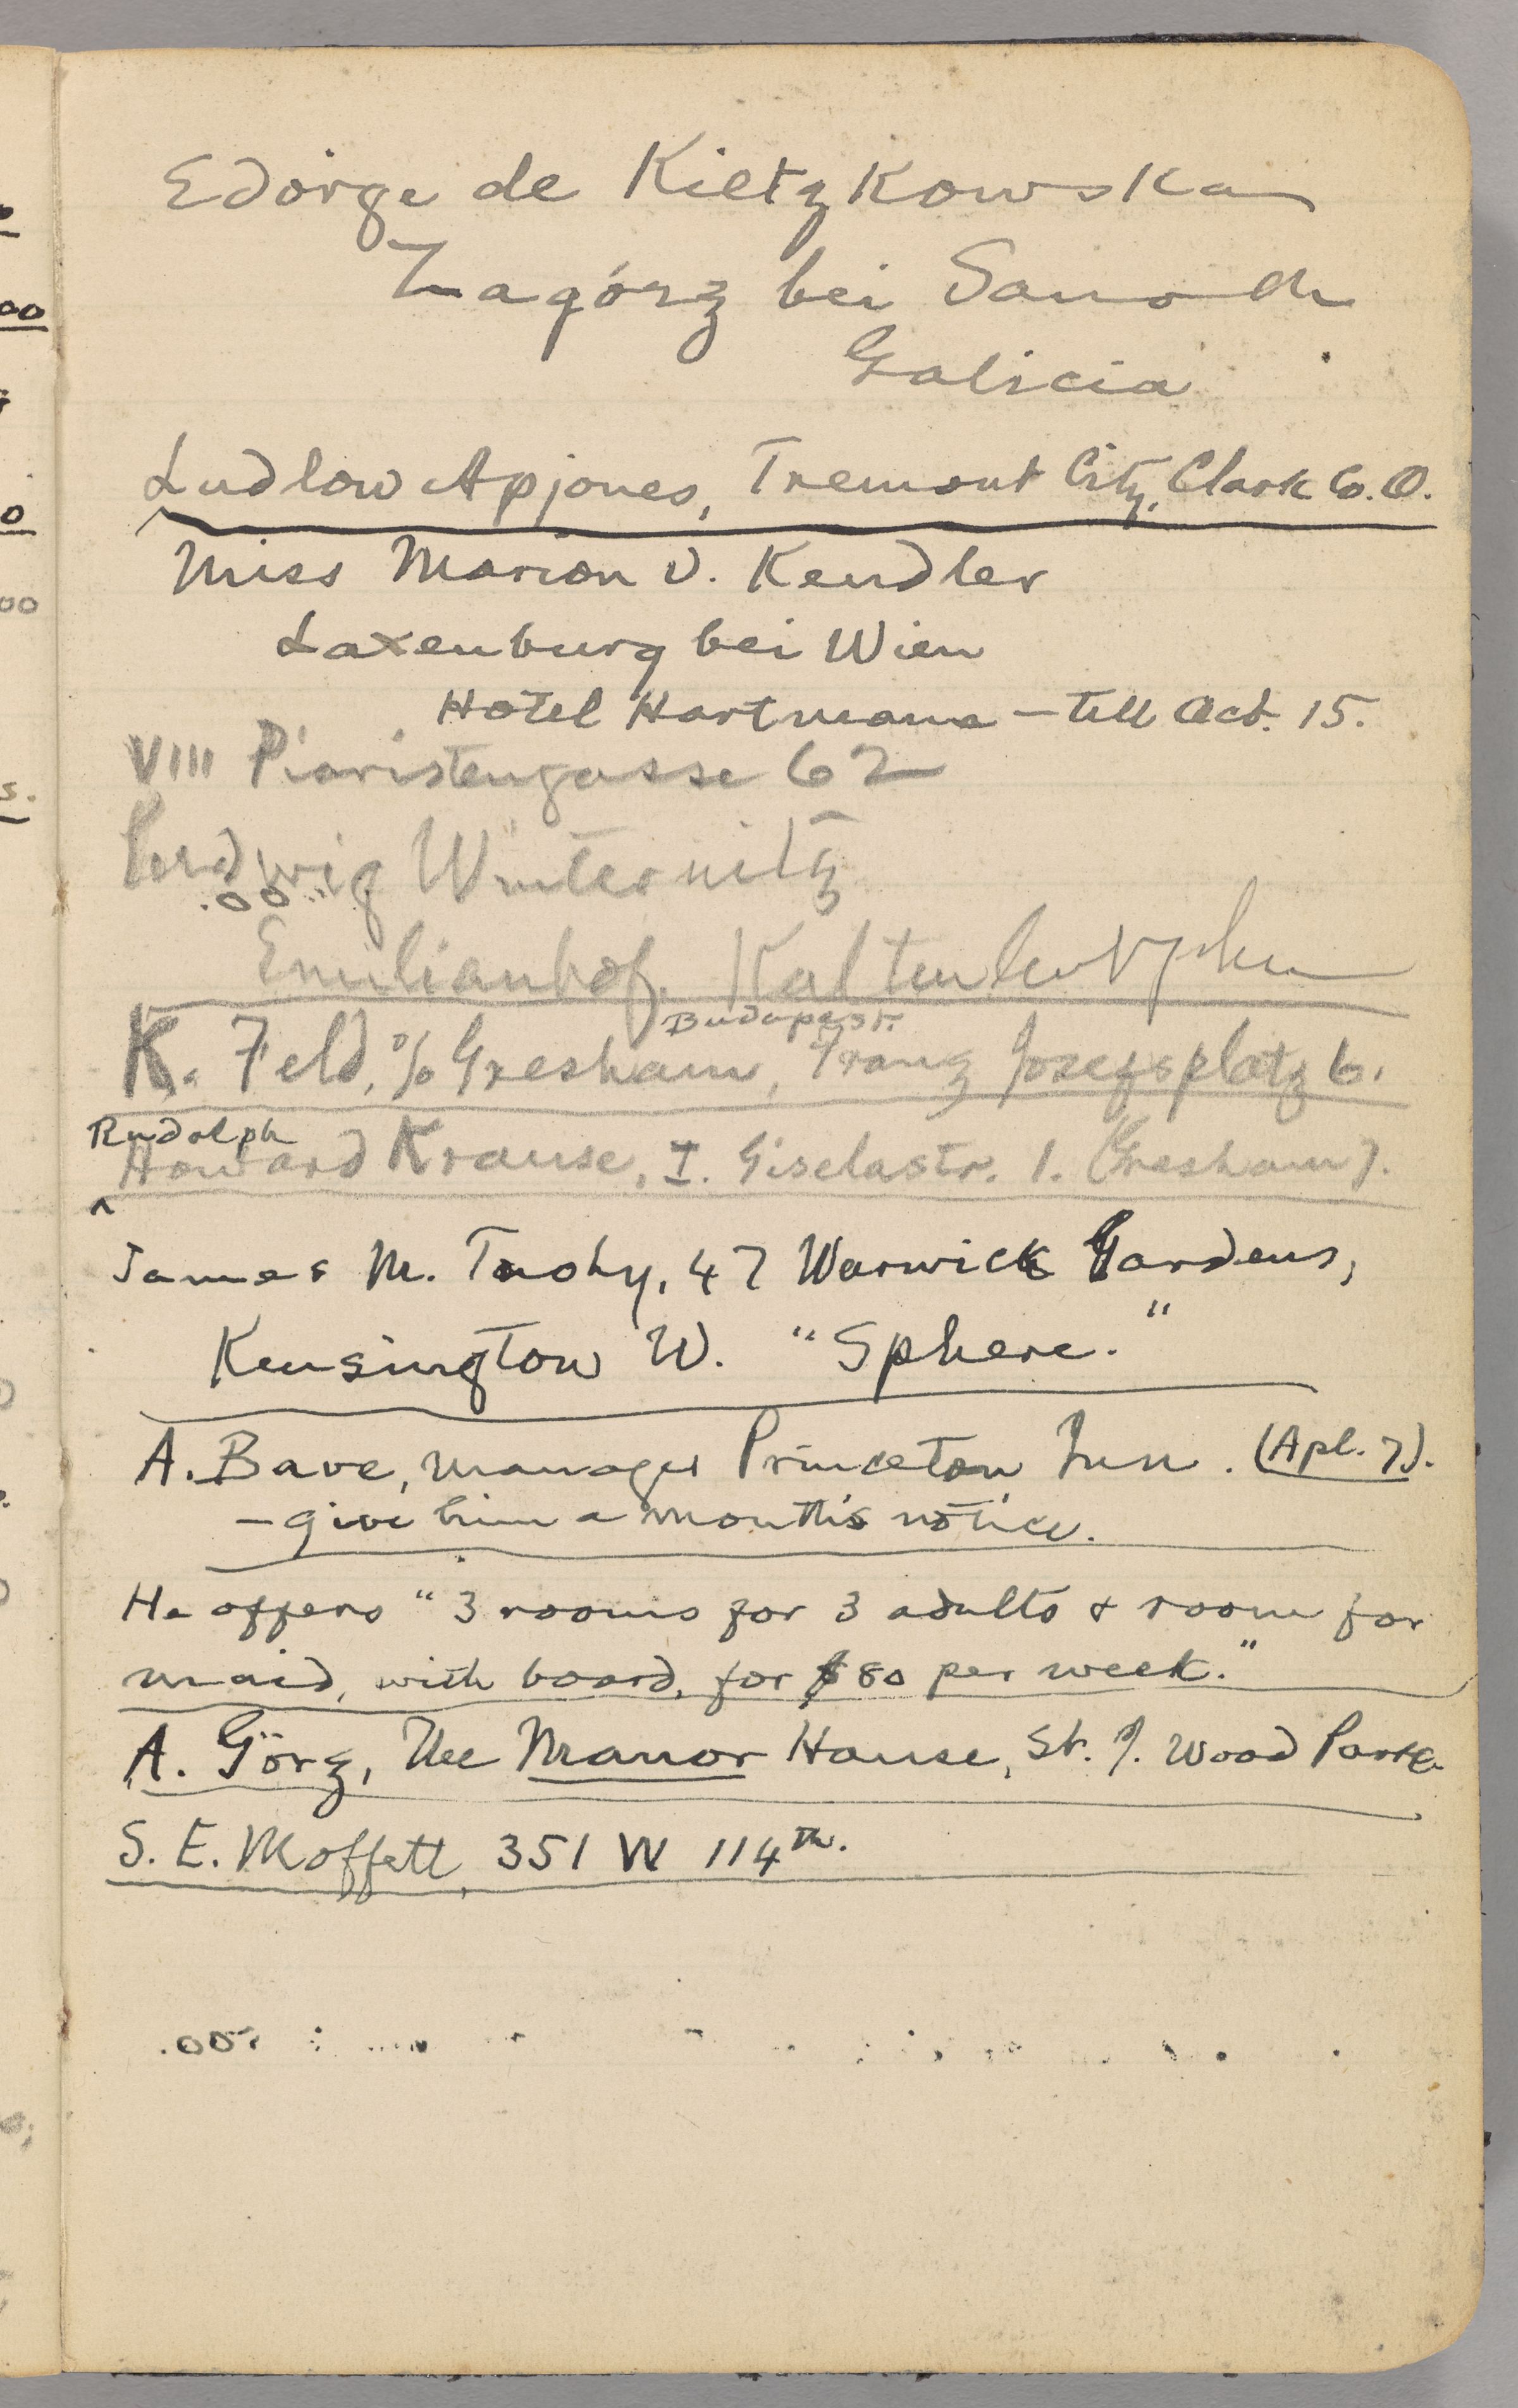 Edörge de Kietzkowska
Zagórz bei Sanok
Galicia
Ludlow Apjones, Tremont City, Clark Co. O.
Miss Marion v. Kendler
Laxenburg bei Wien
Hotel Hartmann – till Oct. 15.
VIII Piaristengasse 62
Ludwig Winternitz
.00
Emilianhof, Kaltenleutgeben
Budapest.
K. Feld, c/o Gresham, Franz Josefsplatz 6.
Rudolph
Howard Krause, I. Giselastr. 1. (Gresham).
^
James M. Tuohy, 47 Warwick Gardens,
Kensington W. "Sphere."
A. Bave, manager Princeton Inn. (Apl. 7).
– give him a month's notice.
He offers "3 rooms for 3 adults & room for
maid, with board, for $80 per week."
A. Görz, The Manor House, St. J. Wood Park.
S. E. Moffett, 351 W 114th.
.00